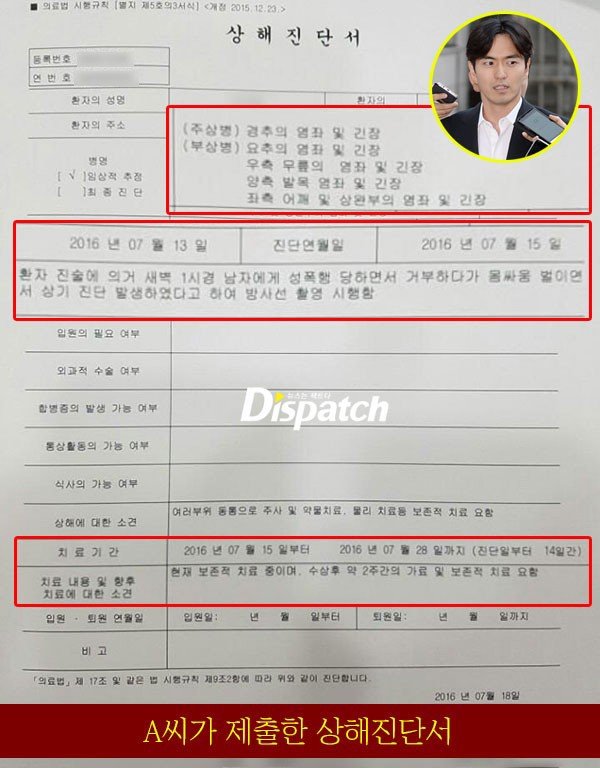 ■ 의료법 시행규칙 [별지 제5호의3서식] <개정 2015.12.23.>
상해진단서
등록번호
연 번 호
환자의 성명
환자의
환자의 주소
병명
[ √ ]임상적 추정
[ ]최종진단
(주상병) 경추의 염좌 및 긴장
(부상병) 요추의 염좌 및 긴장
우측 무릎의 염좌 및 긴장
양측 발목 염좌 및 긴장
좌측 어깨 및 상완부의 염좌 및 긴장
2016 년 07 월 13 일
진단연월일
2016 년 07 월 15 일
환자 진술에 의거 새벽 1시경 남자에게 성폭행 당하면서 거부하다가 몸싸움 벌이면
서 상기 진단 발생하였다고 하여 방사선 촬영 시행함
입원의 필요 여부
외과적 수술 여부
합병증의 발생 가능 여부
통상활동의 가능 여부
식사의 가능 여부
뉴스는 팩트다
Dispatch
상해에 대한 소견
여러부위 동통으로 주사 및 약물치료, 물리 치료등 보존적 치료 요함
치 료 기 간
2016 년 07 월 15 일부터 2016 년 07 월 28 일까지 (진단일부터 14일간)
치료 내용 및 향후
치료에 대한 소견
현재 보존적 치료 중이며, 수상후 약 2주간의 가료 및 보존적 치료 요함
입원 · 퇴원 연월일
입원일: 년 월 일부터
퇴원일: 년 월 일까지
비 고
「의료법」제 17조 및 같은 법 시행규칙 제9조2항에 따라 위와 같이 진단합니다.
2016 년 07월 18일
A씨가 제출한 상해진단서